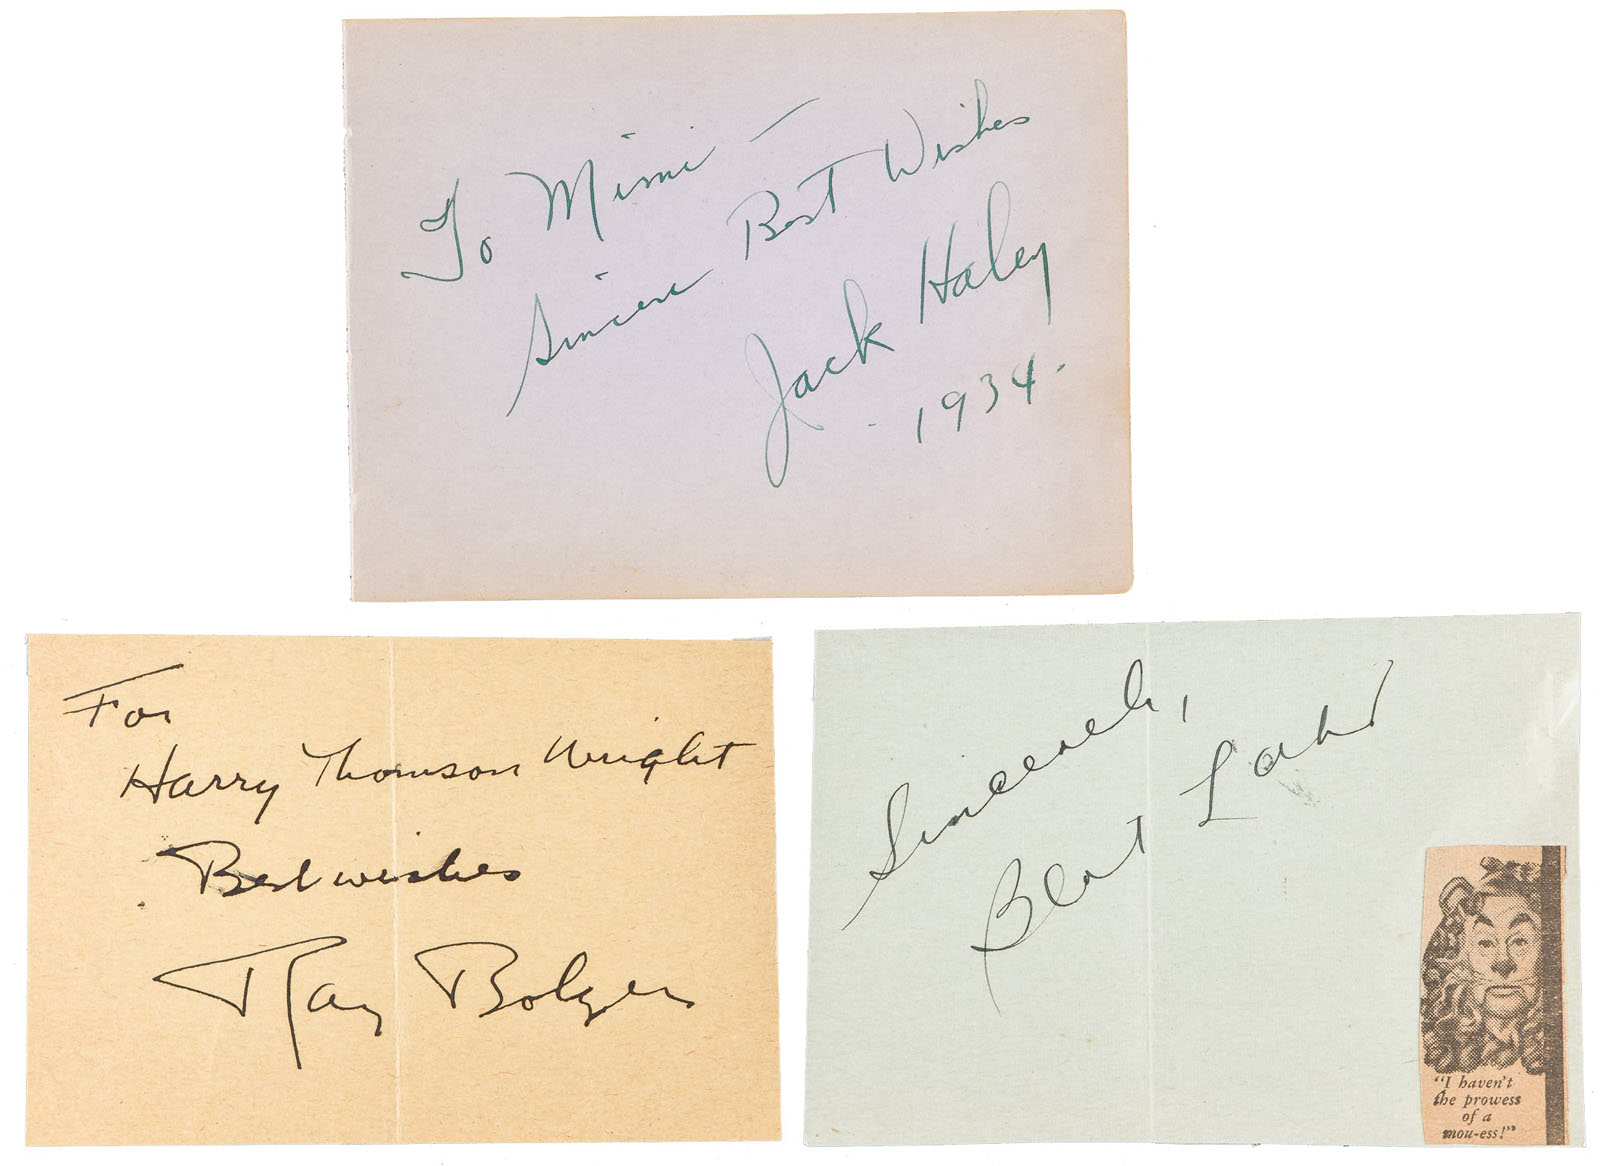 To Mimi —
Sincere Best Wishes
Jack Haley
- 1934 -
For
Harry Thomson Wright
Best wishes
Ray Bolger
Sincerely,
Bert Lahr
"I haven't
the prowess
of a
mou-ess!"